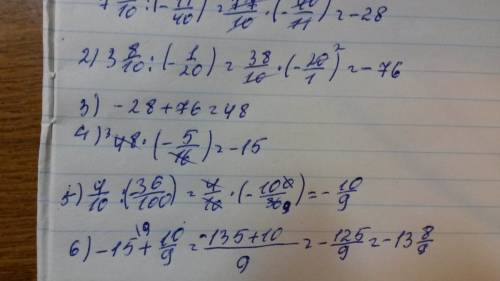 7 7/10 : (- 11/40) = 77/10 · (- 40/11) = -28
2) 3 8/10 : (- 1/20) = 38/10 · (- 20/1) 2 = -76
3) -28 + 76 = 48
4) 3 48 · (- 5/16) = -15
5) 4/10 : (36/100) = 4/10 · (- 100/36 9) = - 10/9
6) -15 19 + 10/9 = -135+10/9 = - 125/9 = -13 8/9